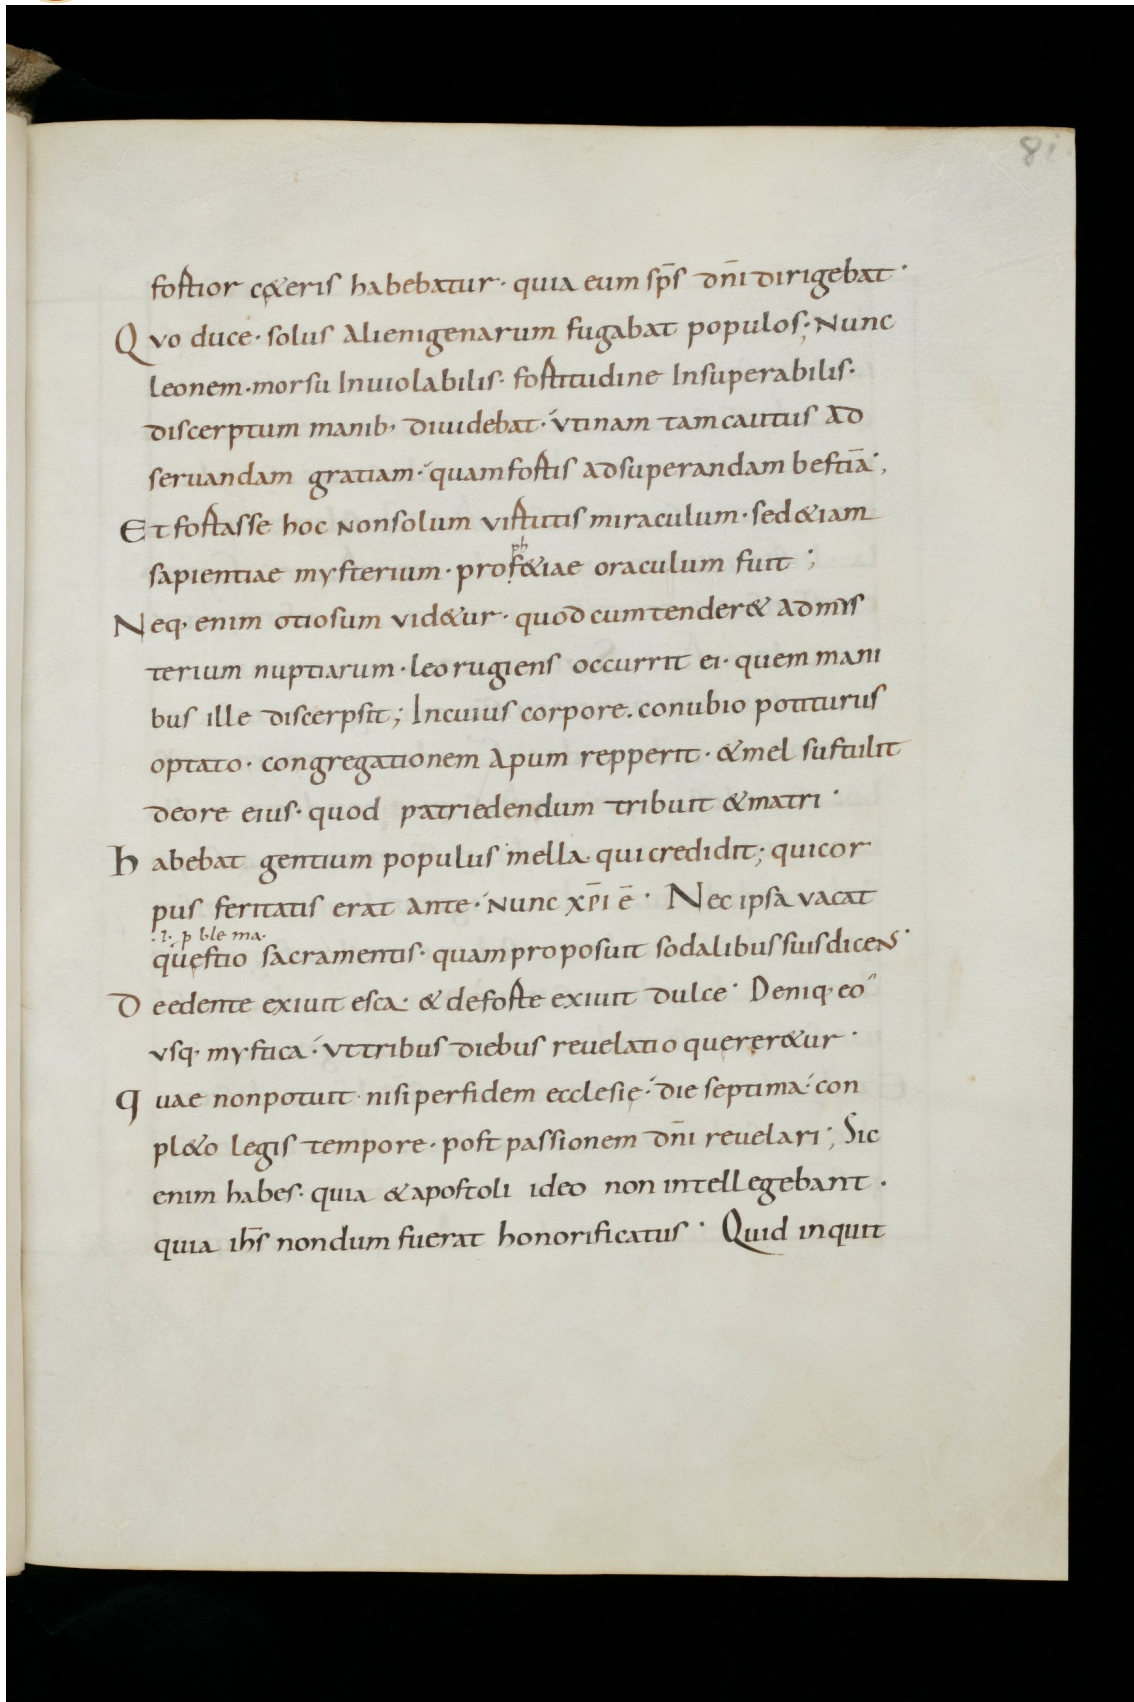 81.
fortior cęteris habebatur· quia eum sp̄s dn̄i dirigebat·
Quo duce· solus alienigenarum fugabat populos; Nunc
leonem· morsu Inuiolabilis· fortitudine Insuperabilis·
discerptum manib; diuidebat· vtinam tam cautus ad
seruandam gratiam· quam fortis ad superandam bestiā;
Et fortasse hoc non solum virtutis miraculum· sed &iam
ph
sapientiae mysterium· prof&iae oraculum fuit;
Neq; enim otiosum vid&ur· quod cum tender& ad mys
terium nuptiarum· leo rugiens occurrit ei· quem mani
bus ille discerpsit; In cuius corpore· conubio potiturus
optato· congregationem apum repperit· & mel sustulit
de ore eius· quod patri edendum tribuit & matri·
habebat gentium populus mella qui credidit; qui cor
pus feritatis erat ante· Nunc xp̄i ē· Nec ipsa vacat
.i. p ble ma·
quęstio sacramentis· quam proposuit sodalibus suis dicens·
De edente exiuit esca· & de forte exiuit dulce· Deniq; eo
vsq; mystica· vt tribus diebus reuelatio quęrer&ur·
quae non potuit nisi per fidem ecclesię· die septima· con
pl&o legis tempore· post passionem dn̄i reuelari; Sic
enim habes· quia & apostoli ideo non intellegebant·
quia ih̄s nondum fuerat honorificatus· Quid inquit